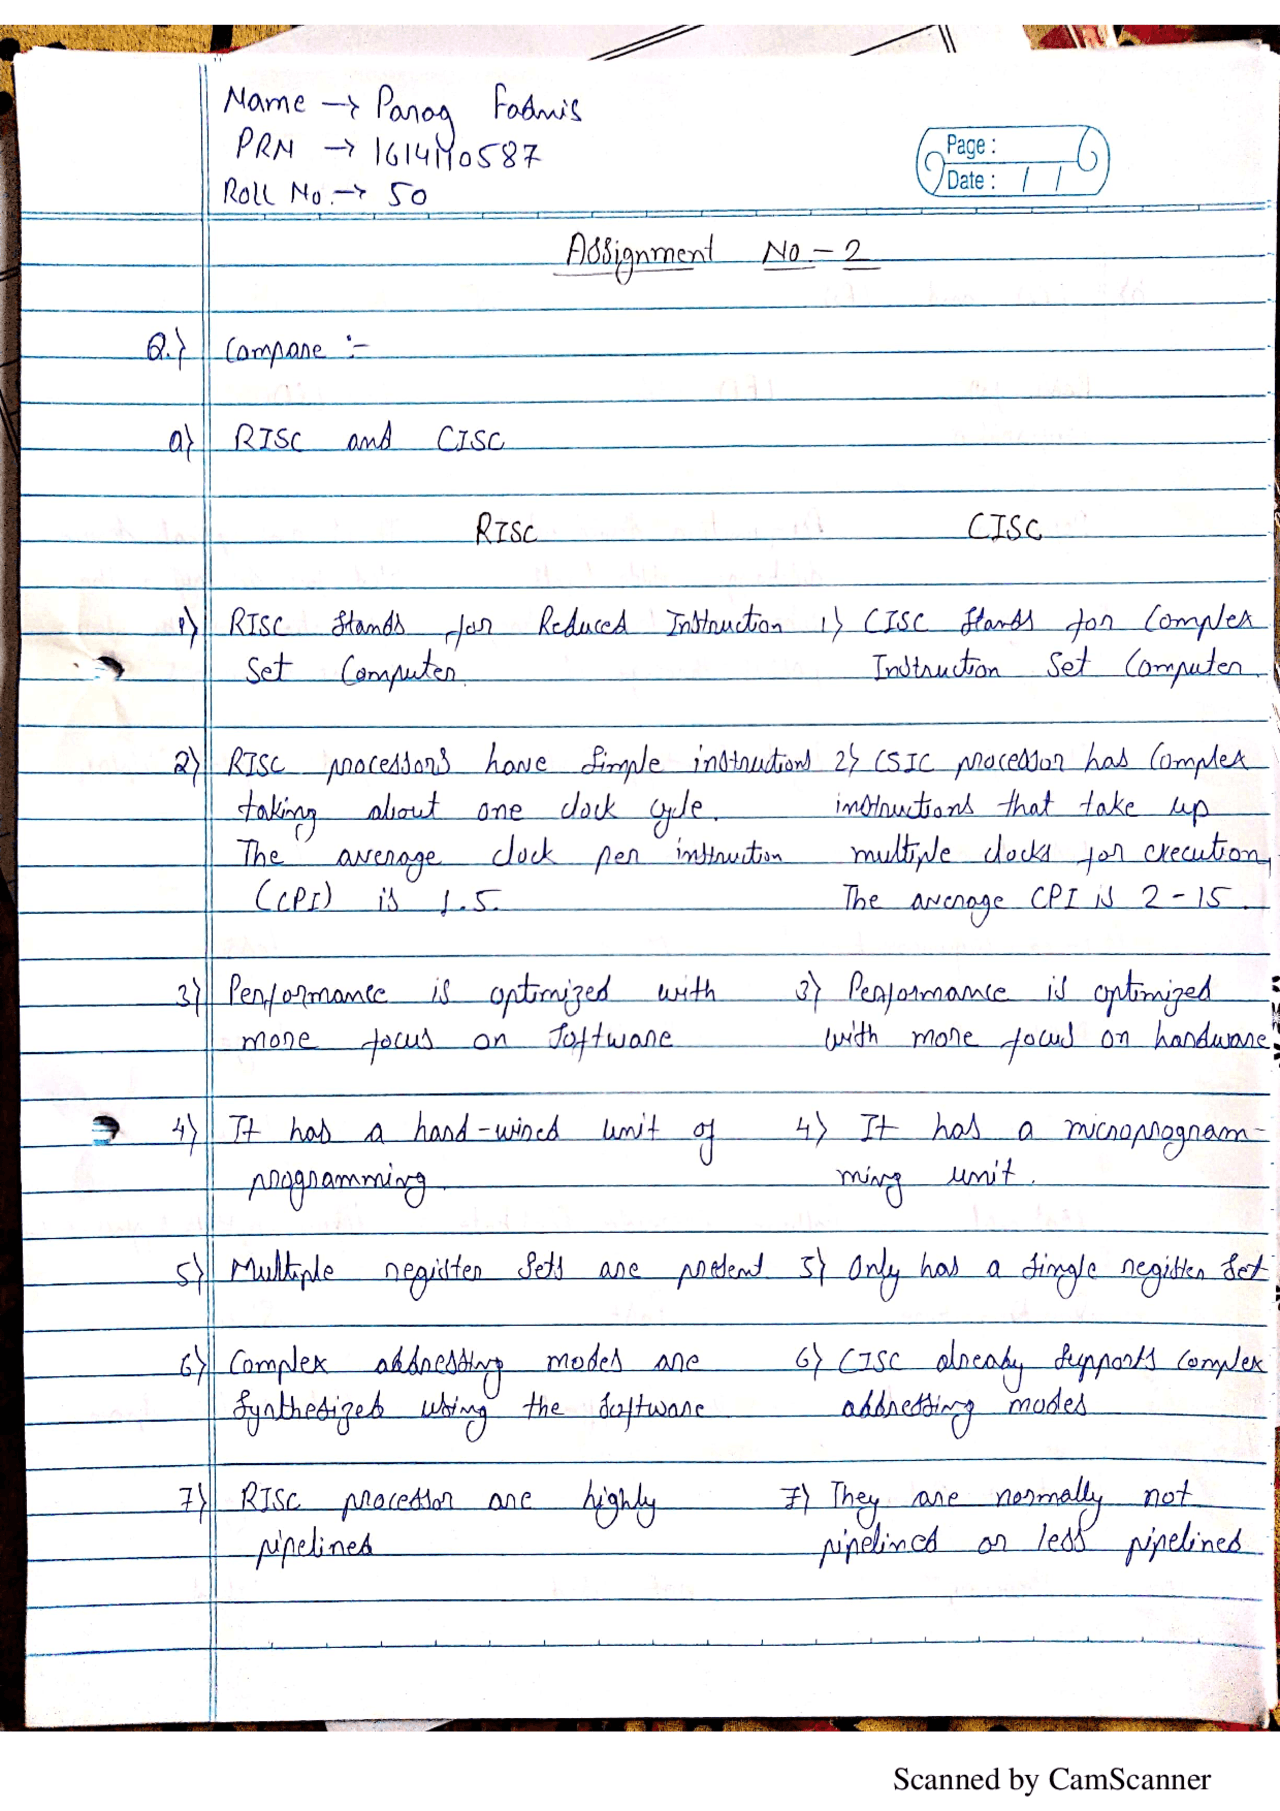 Name → Parag Fadnis
PRN → 1614110587
Roll No. → 50
Page :
Date : / /
Assignment No - 2
Q.) Compare :-
a) RISC and CISC
RISC CISC
1) RISC stands for Reduced Instruction 1) CISC stands for Complex
Set Computer. Instruction Set Computer.
2) RISC processors have simple instructions 2) CSIC processor has complex
taking about one clock cycle. instructions that take up
The average clock per instruction multiple clocks for execution,
(CPI) is 1.5. The average CPI is 2 - 15.
3) Performance is optimized with 3) Performance is optimized
more focus on software with more focus on hardware
4) It has a hard-wired unit of 4) It has a microprogram-
programming. ming unit.
5) Multiple register sets are present 5) Only has a single register set
6) Complex addressing modes are 6) CISC already supports complex
synthesized using the software addressing modes
7) RISC processor are highly 7) They are normally not
pipelines pipelined or less pipelined
Scanned by CamScanner